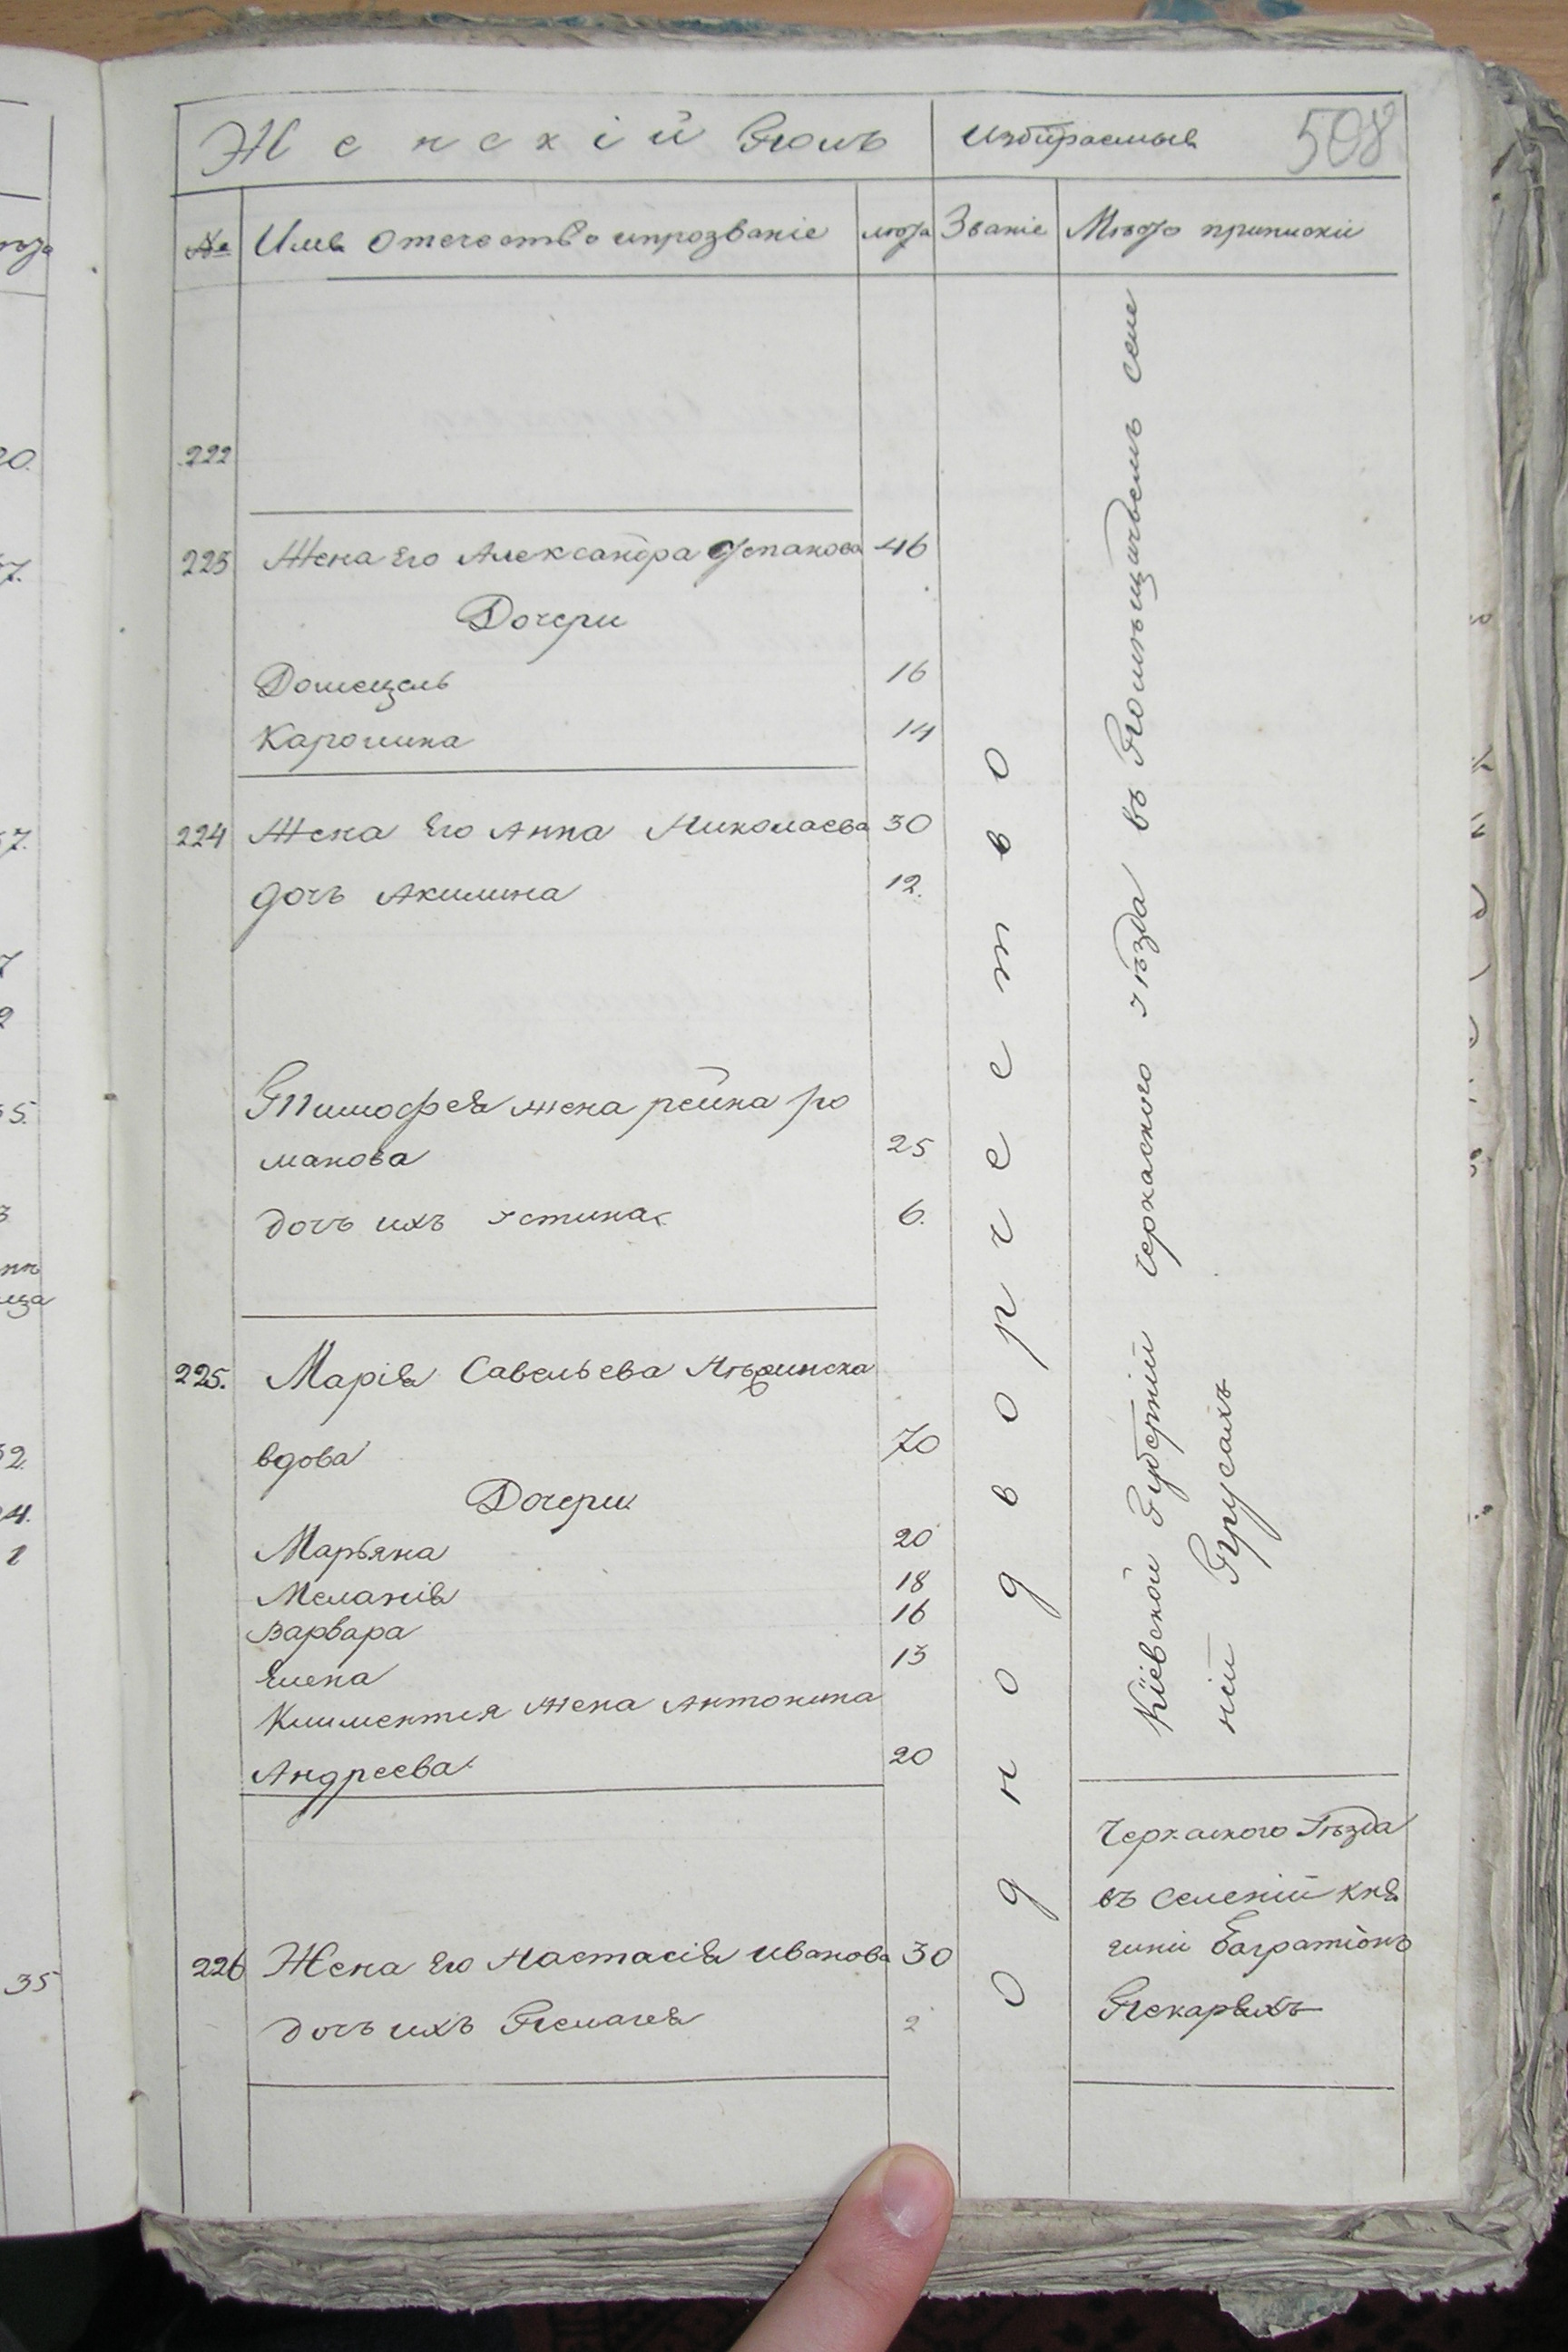 Женскій Полъ
Избираемыя
508
№
Имя Отечество ипрозваніе
лѣта
Званіе
Мѣсто приписки
222
223 Жена Его Александра Степанова 46
Дочери
Домецель 16
Каролина 14
224 Жена Его Анна Николаева 30
дочь Акилина 12.
Тимофея жена рейна ро
манова 25
дочь ихъ Устина 6.
225. Марія Савельева
вдова 70
Дочери
Марьяна 20
Меланія 18
Варвара 16
Елена 13
Климентія жена Антонина
Андреева 20
226 Жена Его Настасія Иванова 30
дочь ихъ Пелагея 2
однодворчество
Кіевской Губерніи черкаского уѣзда въ Помѣщичьемъ селе
ніи Прусахъ
Черкаского Уѣзда
въ селеніи кня
гини Багратіонъ
Пекаряхъ